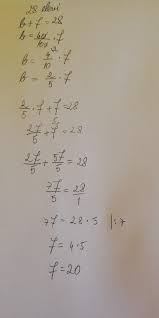 28 elevi
b+f=28
b=40/100·f
b=4/10·f
b=2/5·f
2/5·f+f=28
2f/5+f=28
2f/5+5f/5=28
7f/5=28/1
7f=28·5 |:7
f=4·5
f=20